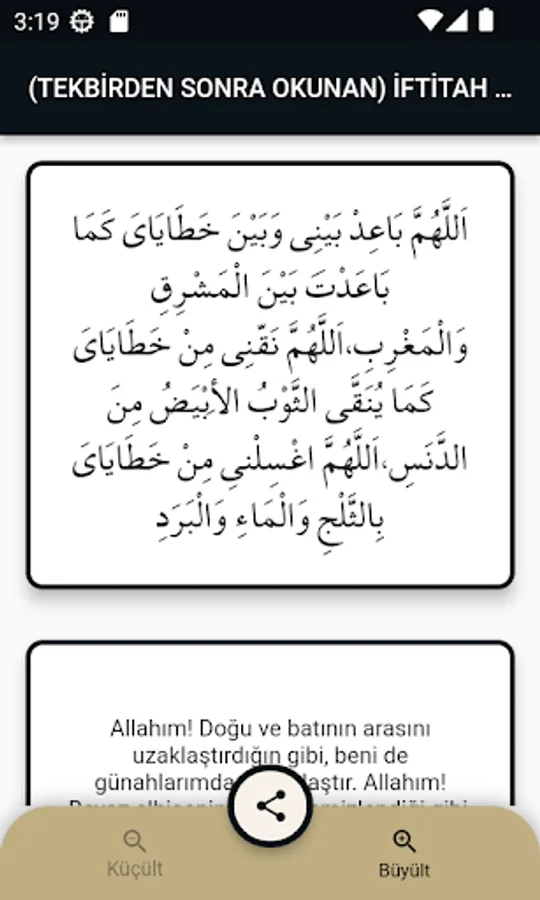 3:19
(TEKBİRDEN SONRA OKUNAN) İFTİTAH ...
اَللَّهُمَّ بَاعِدْ بَيْنِى وَبَيْنَ خَطَايَاىَ كَمَا
بَاعَدْتَ بَيْنَ الْمَشْرِقِ
وَالْمَغْرِبِ،اَللَّهُمَّ نَقّنِى مِنْ خَطَايَاىَ
كَمَا يُنَقَّى الثَّوْبُ الأبْيَضُ مِنَ
الدَّنَسِ،اَللَّهُمَّ اغْسِلْنِى مِنْ خَطَايَاىَ
بِالثَّلْجِ وَالْمَاءِ وَالْبَرَدِ
Allahım! Doğu ve batının arasını
uzaklaştırdığın gibi, beni de
Allahım!
Küçült
Büyült